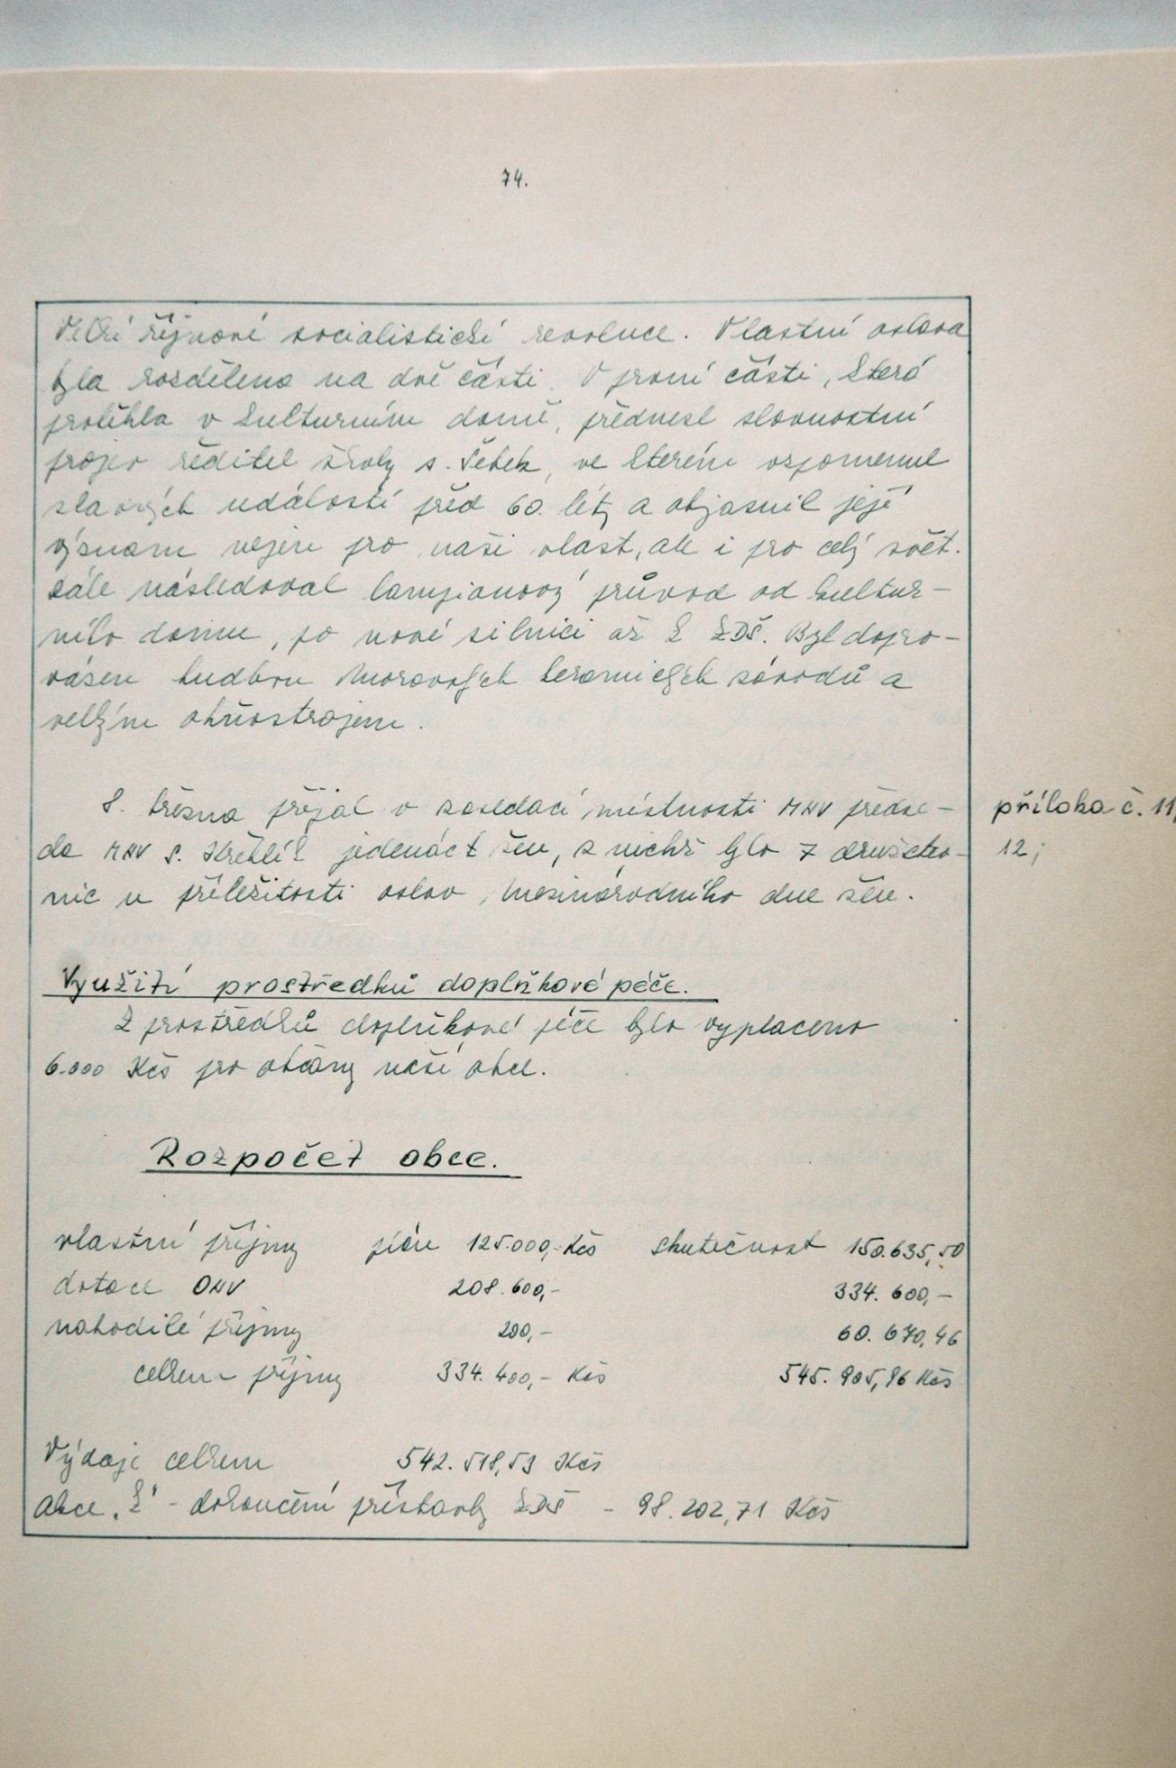 74.
Velké říjnové socialistické revoluce. Vlastní oslava
byla rozdělena na dvě části. V první části, která
proběhla v kulturním domě, přednesl slavnostní
projev ředitel školy s. Šebek, ve kterém vzpomenul
slavných událostí před 60. léty a objasnil její
význam nejen pro naši vlast, ale i pro celý svět.
Dále následoval lampionový průvod od kultur-
ního domu, po nové silnici až k ZDŠ. Byl dopro-
vázen hudbou Moravských keramických závodů a
velkým ohňostrojem.
8. března přijal v zasedací místnosti MNV předse- příloha č. 11,
da MNV s. jedenáct žen, z nichž bylo 7 družstev- 12;
nic u příležitosti oslav Mezinárodního dne žen.
Využití prostředků doplňkové péče.
Z prostředků doplňkové péče bylo vyplaceno
6.000 Kčs pro občany naší obce.
Rozpočet obce.
vlastní příjmy plán 125.000,- Kčs skutečnost 150.635,50
dotace ONV 208.600,- 334.600,-
nahodilé příjmy 200,- 60.670,46
celkem příjmy 334.400,- Kčs 545.905,96 Kčs
Výdaje celkem 542.518,53 Kčs
Akce "Z" - dokončení přístavby ZDŠ - 98.202,71 Kčs